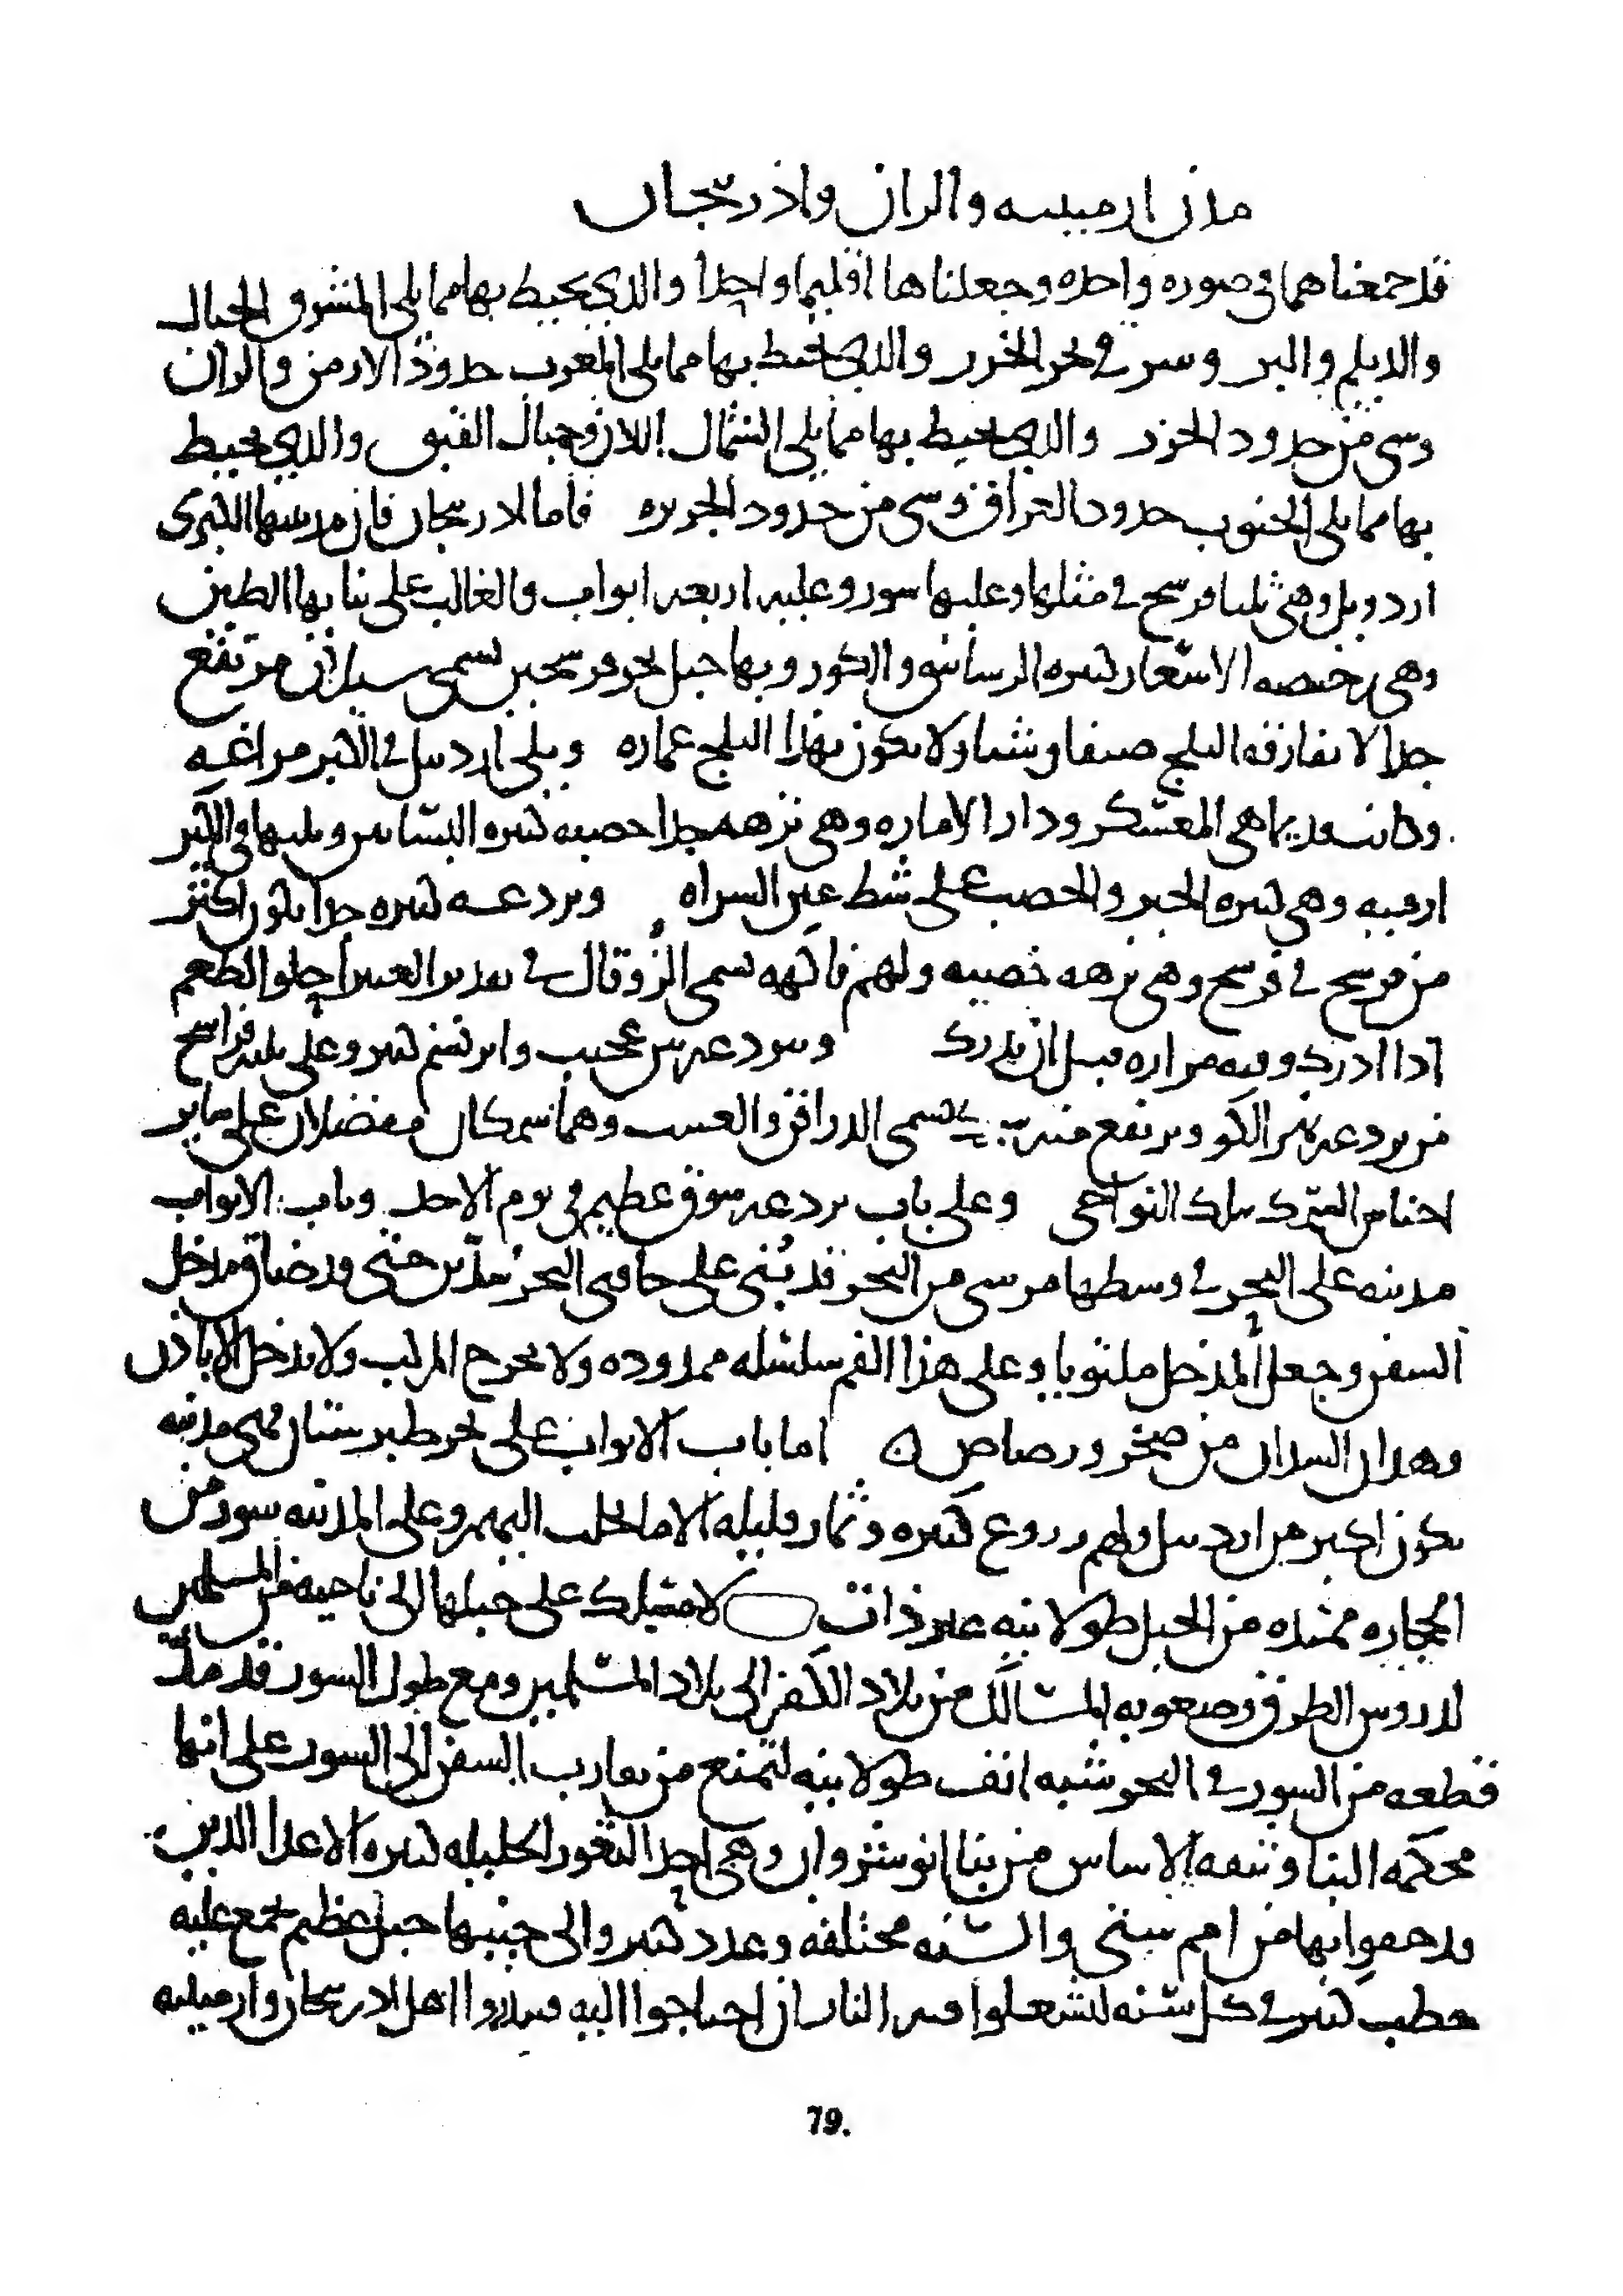 مدن ارمينيه والران واذربيجان
قد جمعناهما في صوره واحده وجعلناها اقليما واحدا والذي يحيط بها مما يلي المشرق الجبال
والديلم والبر وسير في بحر الخزر والذي يحيط بها مما يلي المغرب حدود الارمن والران
وشي من حدود الخزر والذي يحيط بها مما يلي الشمال اللان وجبال القبق والذي يحيط
بها مما يلي الجنوب حدود العراق وشي من حدود الجزيره فاما الاذربيجان فان مدينتها الكبرى
اردويل وهي ثلثا فرسخ في مثلها وعليها سور وعليه اربعه ابواب والغالب على بنايها الطين
وهي رخيصه الاسعار كثيره الرساتيق والكور وبها جبل نحو فرسخين يسمى سبلان مرتفع
جدا لا يفارقه الثلج صيفا وشتا ولا يكون بهذا الثلج عماره ويلي اردبيل في الكبر مراغه
وكانت قديما هي المعسكر ودار الاماره وهي نزهه جدا خصبه كثيره البساتين ويليها في الكبر
ارميه وهي كثيره الخير والخصب على شط عين السراه وبردعه كثيره جدا تكون اكثر
من فرسخ في فرسخ وهي نزهه خصيبه ولهم فاكهه تسمى الزوقال في تقدير الغبيرا حلو الطعم
اذا ادرك وفيه مراره قبل ان يدرك وببردعه تين عجيب وابرتسم كثير وعلى ثلثه فراسخ
من بردعه نهر الكر ويرتفع منه يسمى الدراقن والعشب وهما سمكان مفضلان على ساير
اجناس السمك بتلك النواحي وعلى باب بردعه سوق عظيم في يوم الاحد وباب الابواب
مدينه على البحر في وسطها مرسى من البحر قد بُني على حافتي البحر سدين حتى قد ضاق مدخل
السفن وجعل المدخل ملتويا وعلى هذا الفم سلسله ممدوده ولا يخرج المركب ولا يدخل الا باذن
وهذان السدان من صخر ورصاص ن اما باب الابواب على بحر طبرستان فهي مدينه
تكون اكبر من اردبيل ولهم زروع كثيره وثمار قليله الا ما يجلب اليهم وعلى المدينه سور من
الحجاره ممتده من الجبل طولا بنيه غير ذات لا مسلك على جبلها الى ناحيه من المسلمين
لدروس الطرق وصعوبه المسالك من بلاد الكفر الى بلاد المسلمين ومع طول السور قد مد
قطعه من السور في البحر شبه انف طولا بنيه لتمنع من تقارب السفن الى السور على انها
محكمه البنا وثيقه الاساس من بنا انوشروان وهي احد الثغور الجليله كثيره الاعدا الذين
قد حفوا بها من امم ستى والسنه مختلفه وعدد كثير والى جنبها جبل عظيم يجمع عليه
حطب كثير في كل سنه ليشعلوا فيه النار ان احتاجوا اليه فينذروا اهل اذربيجان وارمينيه
79.